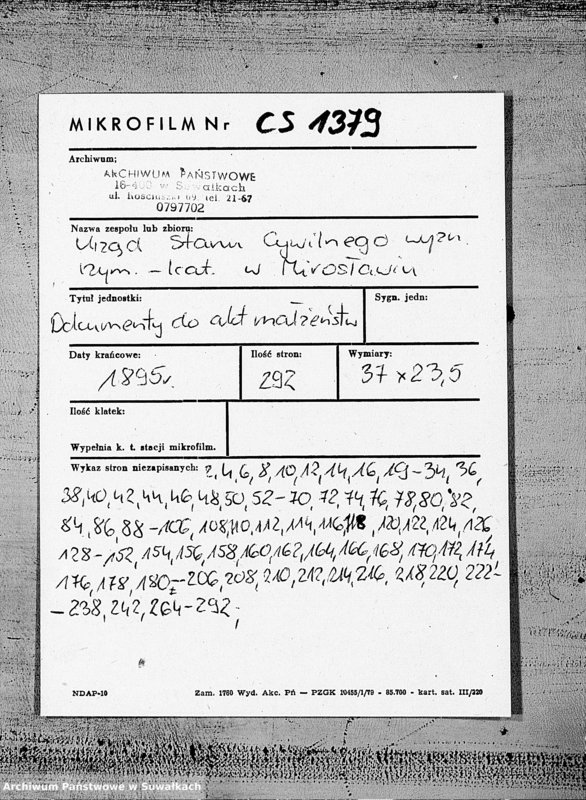 MIKROFILM Nr CS 1379
Archiwum;
ARCHIWUM PAŃSTWOWE
16-400 w Suwałkach
ul. Kościuszki 69, tel. 21-67
0797702
Nazwa zespołu lub zbioru:
Urząd Stanu Cywilnego wyzn.
rzym. - kat. w Mirosławiu
Tytuł jednostki:
Sygn. jedn:
Dokumenty do akt małżeństw
Daty krańcowe:
Ilość stron:
Wymiary:
1895r.
292
37 x 23,5
Ilość klatek:
Wypełnia k. t. stacji mikrofilm.
Wykaz stron niezapisanych: 2,4,6,8,10,12,14,16,19-34,36,
38,40,42,44,46,48,50,52-70,72,74,76,78,80,82,
84,86,88-106,108,110,112,114,116,118,120,122,124,126,
128-152,154,156,158,160,162,164,166,168,170,172,174
176,178,180-206,208,210,212,214,216,218,220,222-
-238,242,264-292;
NDAP-10
Zam. 1760 Wyd. Akc. Pń — PZGK 10455/1/79 - 85.700 - kart. sat. III/220
Archiwum Państwowe w Suwałkach